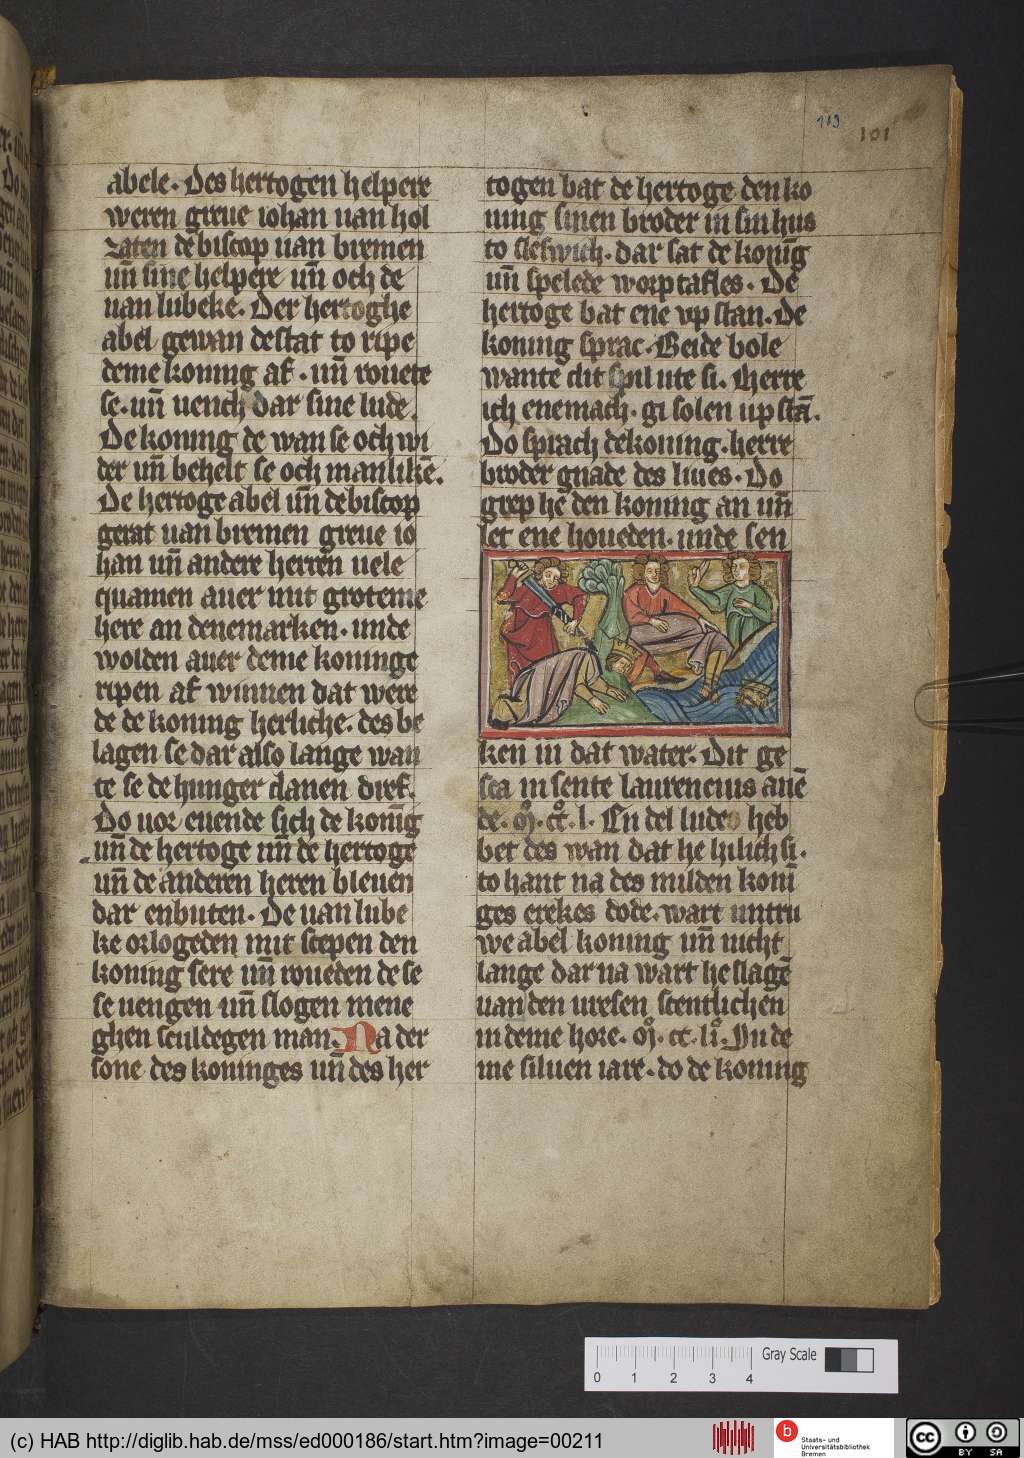 113
101
abele. Des hertogen helpere
weren greue iohan uan hol
zaten de biscop uan bremen
uñ sine helpere uñ och de
uan lubeke. Der hertoghe
abel gewan de stat to ripe
deme koning af. uñ rouete
se. uñ uench dar sine lude.
De koning de wan se och wi
der uñ behelt se och manlikē.
De hertoge abel uñ de biscop
gerat uan bremen greue io
han uñ andere herren uele
quamen auer mit groteme
here an denemarken. unde
wolden auer deme koninge
ripen af winnen dat were
de de koning herliche. des be
lagen se dar also lange wan
te se de hunger danen dref.
Do uor euende sich de konīg
uñ de hertoge uñ de hertoge
uñ de anderen heren bleuen
dar enbuten. De uan lube
ke orlogeden mit scepen den
koning sere uñ roueden de se
se uengen uñ slogen mene
ghen sculdegen man. Na der
sone des koninges uñ des her
togen bat de hertoge den ko
ning sinen broder in sin hus
to sleswich. dar sat de konīg
uñ spelede worptafles. De
hertoge bat ene vp stan. De
koning sprac. Beide bole
wante dit spil ute si. Herre
ich enemach. gi solen up stā.
Do sprach de koning. herre
broder gnade des liues. Do
grep he den koning an uñ
let ene houeden. unde sen
ken in dat water. Dit ge
sca in sente laurencius auē
de. M. cc. l. En del lude heb
bet des wan dat he hilich si.
to hant na des milden konī
ges erekes dode. wart untru
we abel koning uñ nicht
lange dar na wart he slagē
uan den uresen scentlichen
in deme hore. M. cc. li. In de
me siluen iare. do de koning
Gray Scale
0 1 2 3 4
(c) HAB http://diglib.hab.de/mss/ed000186/start.htm?image=00211
b
Staats- und
Universitätsbibliothek
Bremen
cc
BY SA